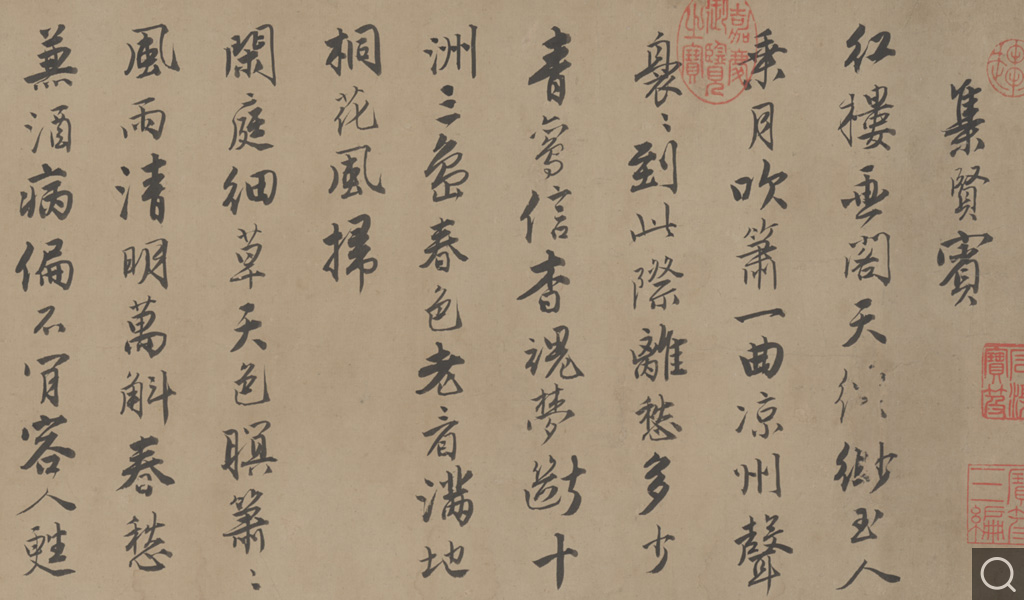 集賢賓
紅樓画閣天緲玉人
乘月吹簫一曲凉州聲
裊〻到此際離愁多少
青鸞信杳魂夢斷十
洲三島春色老看滿地
桐花風掃
閑庭細草天色暝蕭〻
風雨清明萬斛春愁
兼酒病偏不肯容人甦
嘉慶御覽之寶